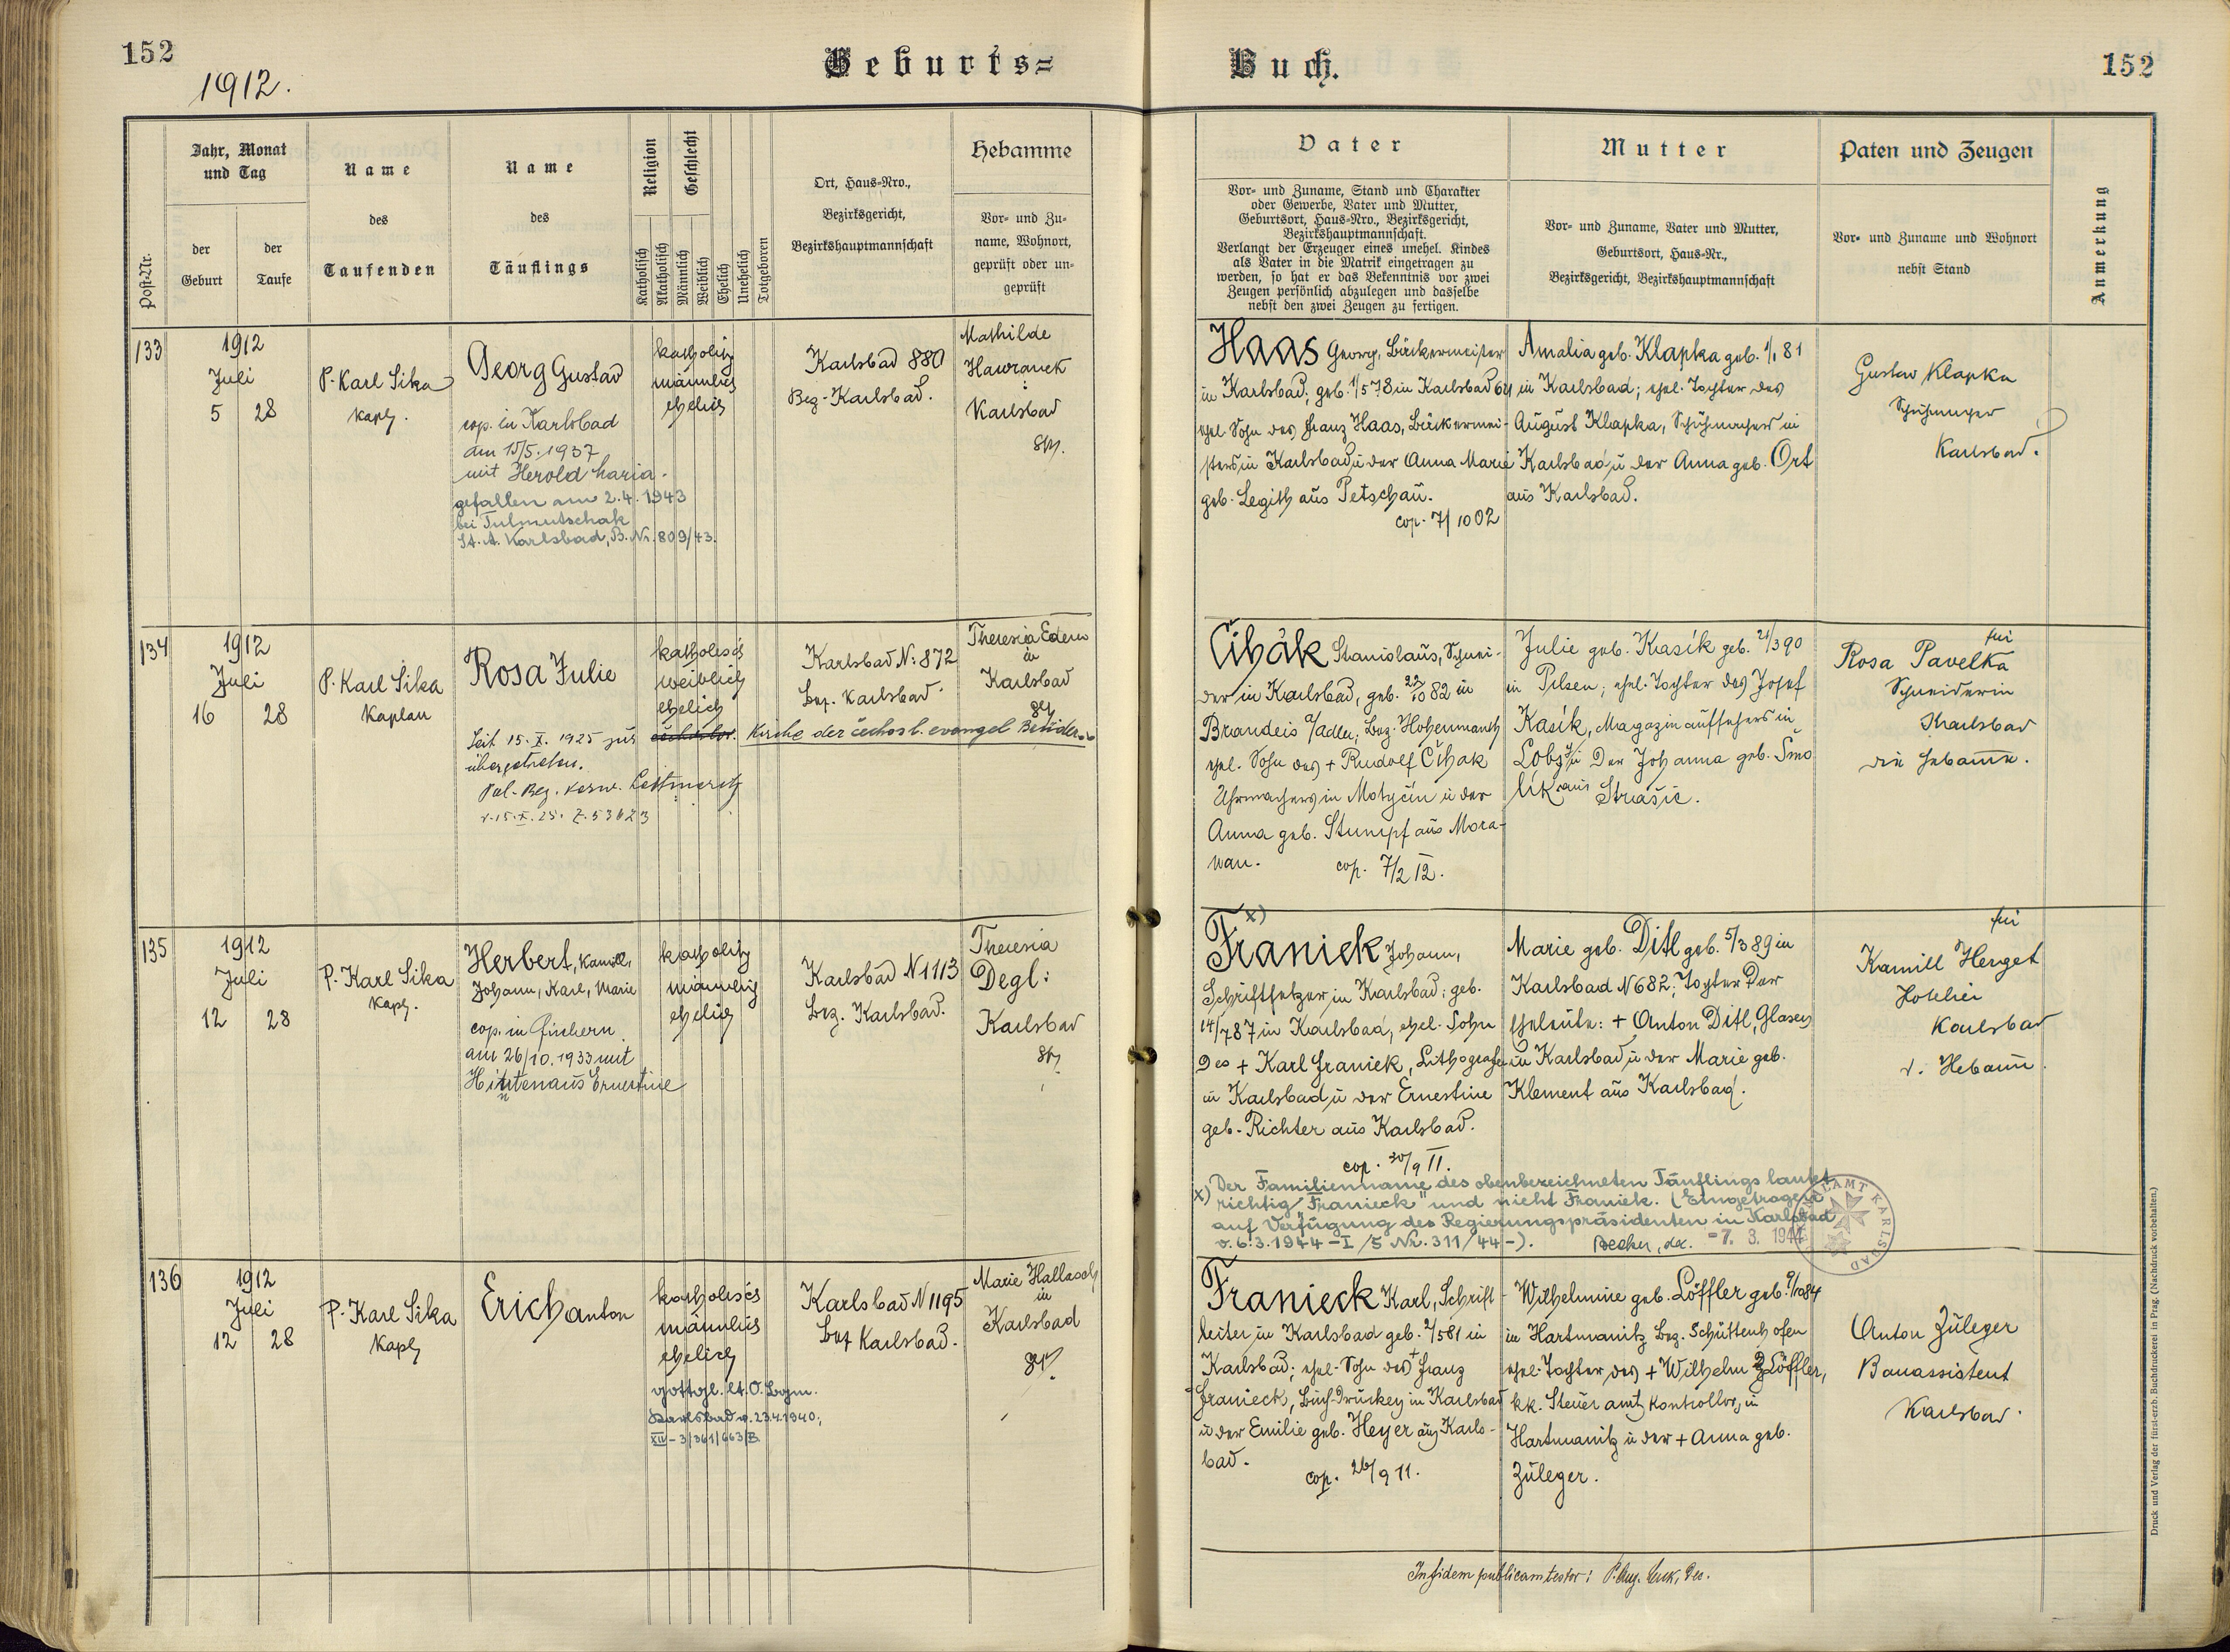 152
1912.
Geburts=
Buch.
152
Post-Nr.
Jahr, Monat
und Tag
der
Geburt
der
Taufe
Name
des
Taufenden
Name
des
Täuflings
Religion
Katholisch
Akatholisch
Geschlecht
Männlich
Weiblich
Ehelich
Unehelich
Totgeboren
Ort, Haus-Nro.,
Bezirksgericht,
Bezirkshauptmannschaft
Hebamme
Vor- und Zu-
name, Wohnort,
geprüft oder un-
geprüft
Vater
Vor- und Zuname, Stand und Charakter
oder Gewerbe, Vater und Mutter,
Geburtsort, Haus-Nro., Bezirksgericht,
Bezirkshauptmannschaft.
Verlangt der Erzeuger eines unehel. Kindes
als Vater in die Matrik eingetragen zu
werden, so hat er das Bekenntnis vor zwei
Zeugen persönlich abzulegen und dasselbe
nebst den zwei Zeugen zu fertigen.
Mutter
Vor- und Zuname, Vater und Mutter,
Geburtsort, Haus-Nr.,
Bezirksgericht, Bezirkshauptmannschaft
Paten und Zeugen
Vor- und Zuname und Wohnort
nebst Stand
Anmerkung
133
1912
Juli
5 28
P. Karl Sika
Kapl.
Georg Gustav
cop. in Karlsbad
am 15/5. 1937
mit Herold Maria.
gefallen am 2.4.1943
bei Tulmutschak
St. A. Karlsbad, B. Nr. 809/43.
katholisch
männlich
ehelich
Karlsbad 880
Bez. Karlsbad.
Mathilde
Hawranek
Karlsbad
Haas Georg, Bäckermeister
in Karlsbad; geb. 1/5 78 in Karlsbad
ehel. Sohn des Franz Haas, Bäckermei-
sters in Karlsbad u der Anna Marie
geb. Legith aus Petschau.
cop. 7/10 02
Amalia geb. Klapka geb. 1/1 81
in Karlsbad; ehel. Tochter des
August Klapka, Schuhmachers in
Karlsbad u der Anna geb. Ort
aus Karlsbad.
Gustav Klapka
Schuhmacher
Karlsbad.
134
1912
Juli
16 28
P. Karl Sika
Kaplan
Rosa Julie
Seit 15. X. 1925 zur čechoslov. Kirche der čechosl. evangel Brüder
übergetreten.
Pol. Bez. Verw. Leitmeritz
v. 15. X. 25. Z. 53623
katholisch
weiblich
ehelich
Karlsbad N: 872
Bez. Karlsbad.
Theresia Ederer
in
Karlsbad
Čihák Stanislaus, Schnei-
der in Karlsbad, geb. 22/10 82 in
Brandeis a/Adler, Bez. Hohenmauth
ehel. Sohn des + Rudolf Čihak
Uhrmachers in Motyčin u der
Anna geb. Stumpf aus Mora-
wan.
cop. 7/2 12.
Julie geb. Kasík geb. 21/3 90
in Pilsen; ehel. Tochter des Josef
Kasík, Magazinaufsehers in
Lobzy u Der Johanna geb. Smo
lík aus Strašic.
für
Rosa Pavelka
Schneiderin
Karlsbad
die Hebamme.
135
1912
Juli
12 28
P. Karl Sika
Kapl.
Herbert, Kamill,
Johann, Karl, Marie
cop. in Fischern
am 26/10. 1933 mit
Hüttenaus Ernestine
n
katholisch
männlich
ehelich
Karlsbad N 1113
Bez. Karlsbad.
Theresia
Degl:
Karlsbad
x)
Franiek Johann,
Schriftsetzer in Karlsbad; geb.
14/7 87 in Karlsbad, ehel. Sohn
Des + Karl Franiek, Lithografen
in Karlsbad u der Ernestine
geb. Richter aus Karlsbad.
cop. 30/9 11.
Marie geb. Ditl geb. 5/3 89 in
Karlsbad N 682; Tochter Der
Eheleute: + Anton Ditl, Glasers
in Karlsbad u der Marie geb.
Klement aus Karlsbad.
für
Kamill Herget
Hotelier
Karlsbad
d. Hebamme.
x) Der Familienname des obenbezeichneten Täuflings lautet
richtig "Franieck" und nicht Franiek. (Eingetragen
auf Verfügung des Regierungspräsidenten in Karlsbad
v. 6.3.1944 - I/5 Nr. 311/44 -).
Becher, dec.
-7. 3. 1944
AMT KARLSBAD
136
1912
Juli
12 28
P. Karl Sika
Kapl
Erich Anton
katholisch
männlich
ehelich
gottgl. lt. O. Bgm.
Karlsbad v. 23.4.1940;
XII-3/361/663/B.
Karlsbad N 1195
Bez Karlsbad.
Marie Hallasch
in
Karlsbad
Franieck Karl, Schrift-
leiter in Karlsbad geb. 2/5 81 in
Karlsbad; ehel. Sohn des + Franz
Franieck, Buch-Druckers in Karlsbad
u der Emilie geb. Heyer aus Karls-
bad.
cop. 26/9 11.
Wilhelmine geb. Löffler geb. 9/10 84
in Hartmanitz Bez. Schüttenhofen
ehel. Tochter des + Wilhelm Löffler,
kk. Steueramts Kontrollor, in
Hartmanitz u der + Anna geb.
Züleger.
Anton Züleger
Bauassistent
Karlsbad.
In fidem publicam testor:
Druck und Verlag der fürst-erzb. Buchdruckerei in Prag. (Nachdruck vorbehalten.)